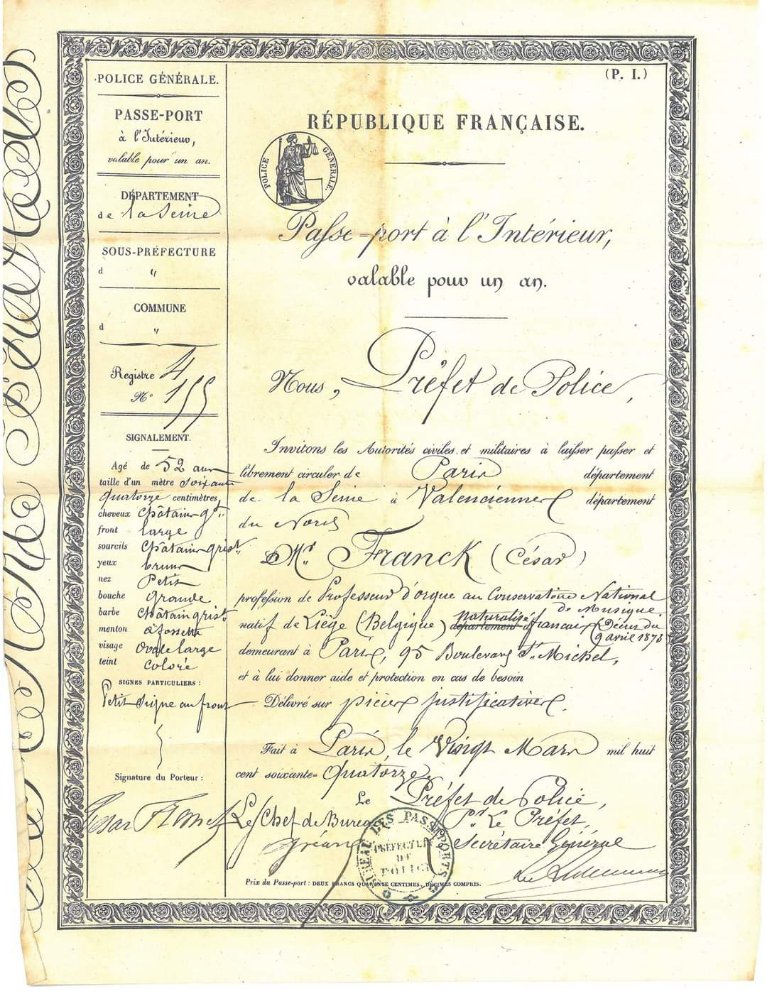 POLICE GÉNÉRALE.
PASSE-PORT
à l'Intérieur,
valable pour un an.
DÉPARTEMENT
de la Seine
SOUS-PRÉFECTURE
d "
COMMUNE
d "
Registre 4
N° 155
SIGNALEMENT.
Agé de 52 ans
taille d'un mètre soixante
quatorze centimètres
cheveux châtain gts
front large
sourcils châtain grist
yeux bruns
nez Petit
bouche grande
barbe châtain grist
menton à fossette
visage ovale large
teint coloré
SIGNES PARTICULIERS :
Petit signe au front
Signature du Porteur :
César Franck
(P. I.)
RÉPUBLIQUE FRANÇAISE.
POLICE GÉNÉRALE.
Passe-port à l'Intérieur,
valable pour un an.
Nous, Préfet de Police,
Invitons les Autorités civiles et militaires à laisser passer et
librement circuler de Paris département
de la Seine à Valenciennes département
du Nord
Mr FRANCK (César)
profession de Professeur d'orgue au Conservatoire National
de Musique
natif de Liège (Belgique) département naturalisé français Décret du
9 avril 1873
demeurant à Paris, 95 Boulevard St Michel,
et à lui donner aide et protection en cas de besoin
Délivré sur pièces justificatives.
Fait à Paris le Vingt Mars mil huit
cent soixante-Quatorze
Le Préfet de Police,
Le Chef de Bureau Pr Le Préfet
Secrétaire Général
BUREAU DES PASSEPORTS
PRÉFECTURE
DE
POLICE
Prix du Passe-port : DEUX FRANCS QUARANTE CENTIMES, DÉCIMES COMPRIS.